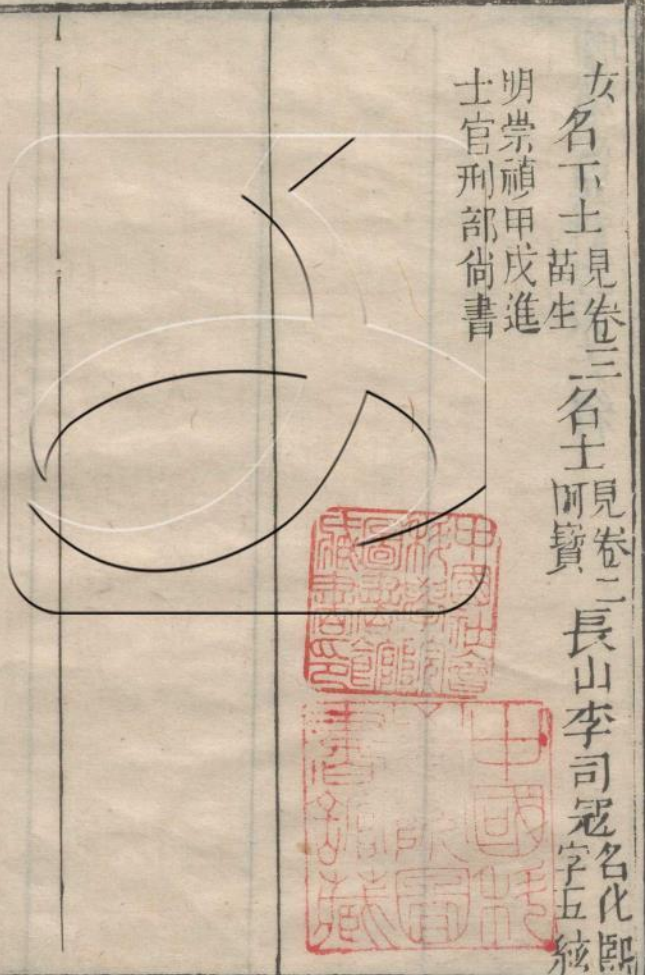 女名下士見卷三苗生名士見卷二阿寶長山李司寇名化熙字五絃
明崇禎甲戌進
士官刑部尙書
中國社會
科學院
圖書館
藏書印
中國科
學院圖
書館藏